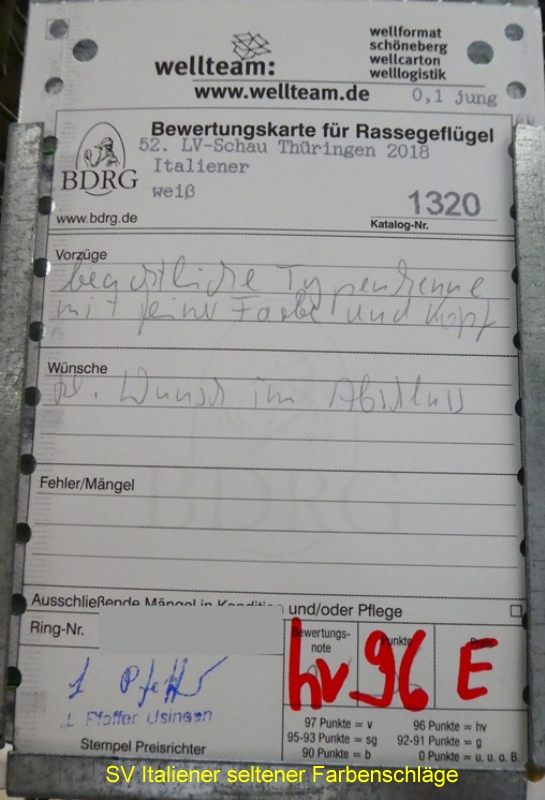 wellteam:
www.wellteam.de
wellformat
schöneberg
wellcarton
welllogistik
0,1 jung
BDRG
www.bdrg.de
Bewertungskarte für Rassegeflügel
52. LV-Schau Thüringen 2018
Italiener
weiß
1320
Katalog-Nr.
Vorzüge
beachtliche Typenhenne
mit feiner Farbe und Kopf
Wünsche
kl. Wunsch im Abschluss
Fehler/Mängel
BDRG
Ausschließende Mängel in Kondition und/oder Pflege
Ring-Nr.
Bewertungs-
note
Punkte
Preis
hv 96 E
Stempel Preisrichter
97 Punkte = v 96 Punkte = hv
95-93 Punkte = sg 92-91 Punkte = g
90 Punkte = b 0 Punkte = u. u. o. B.
SV Italiener seltener Farbenschläge